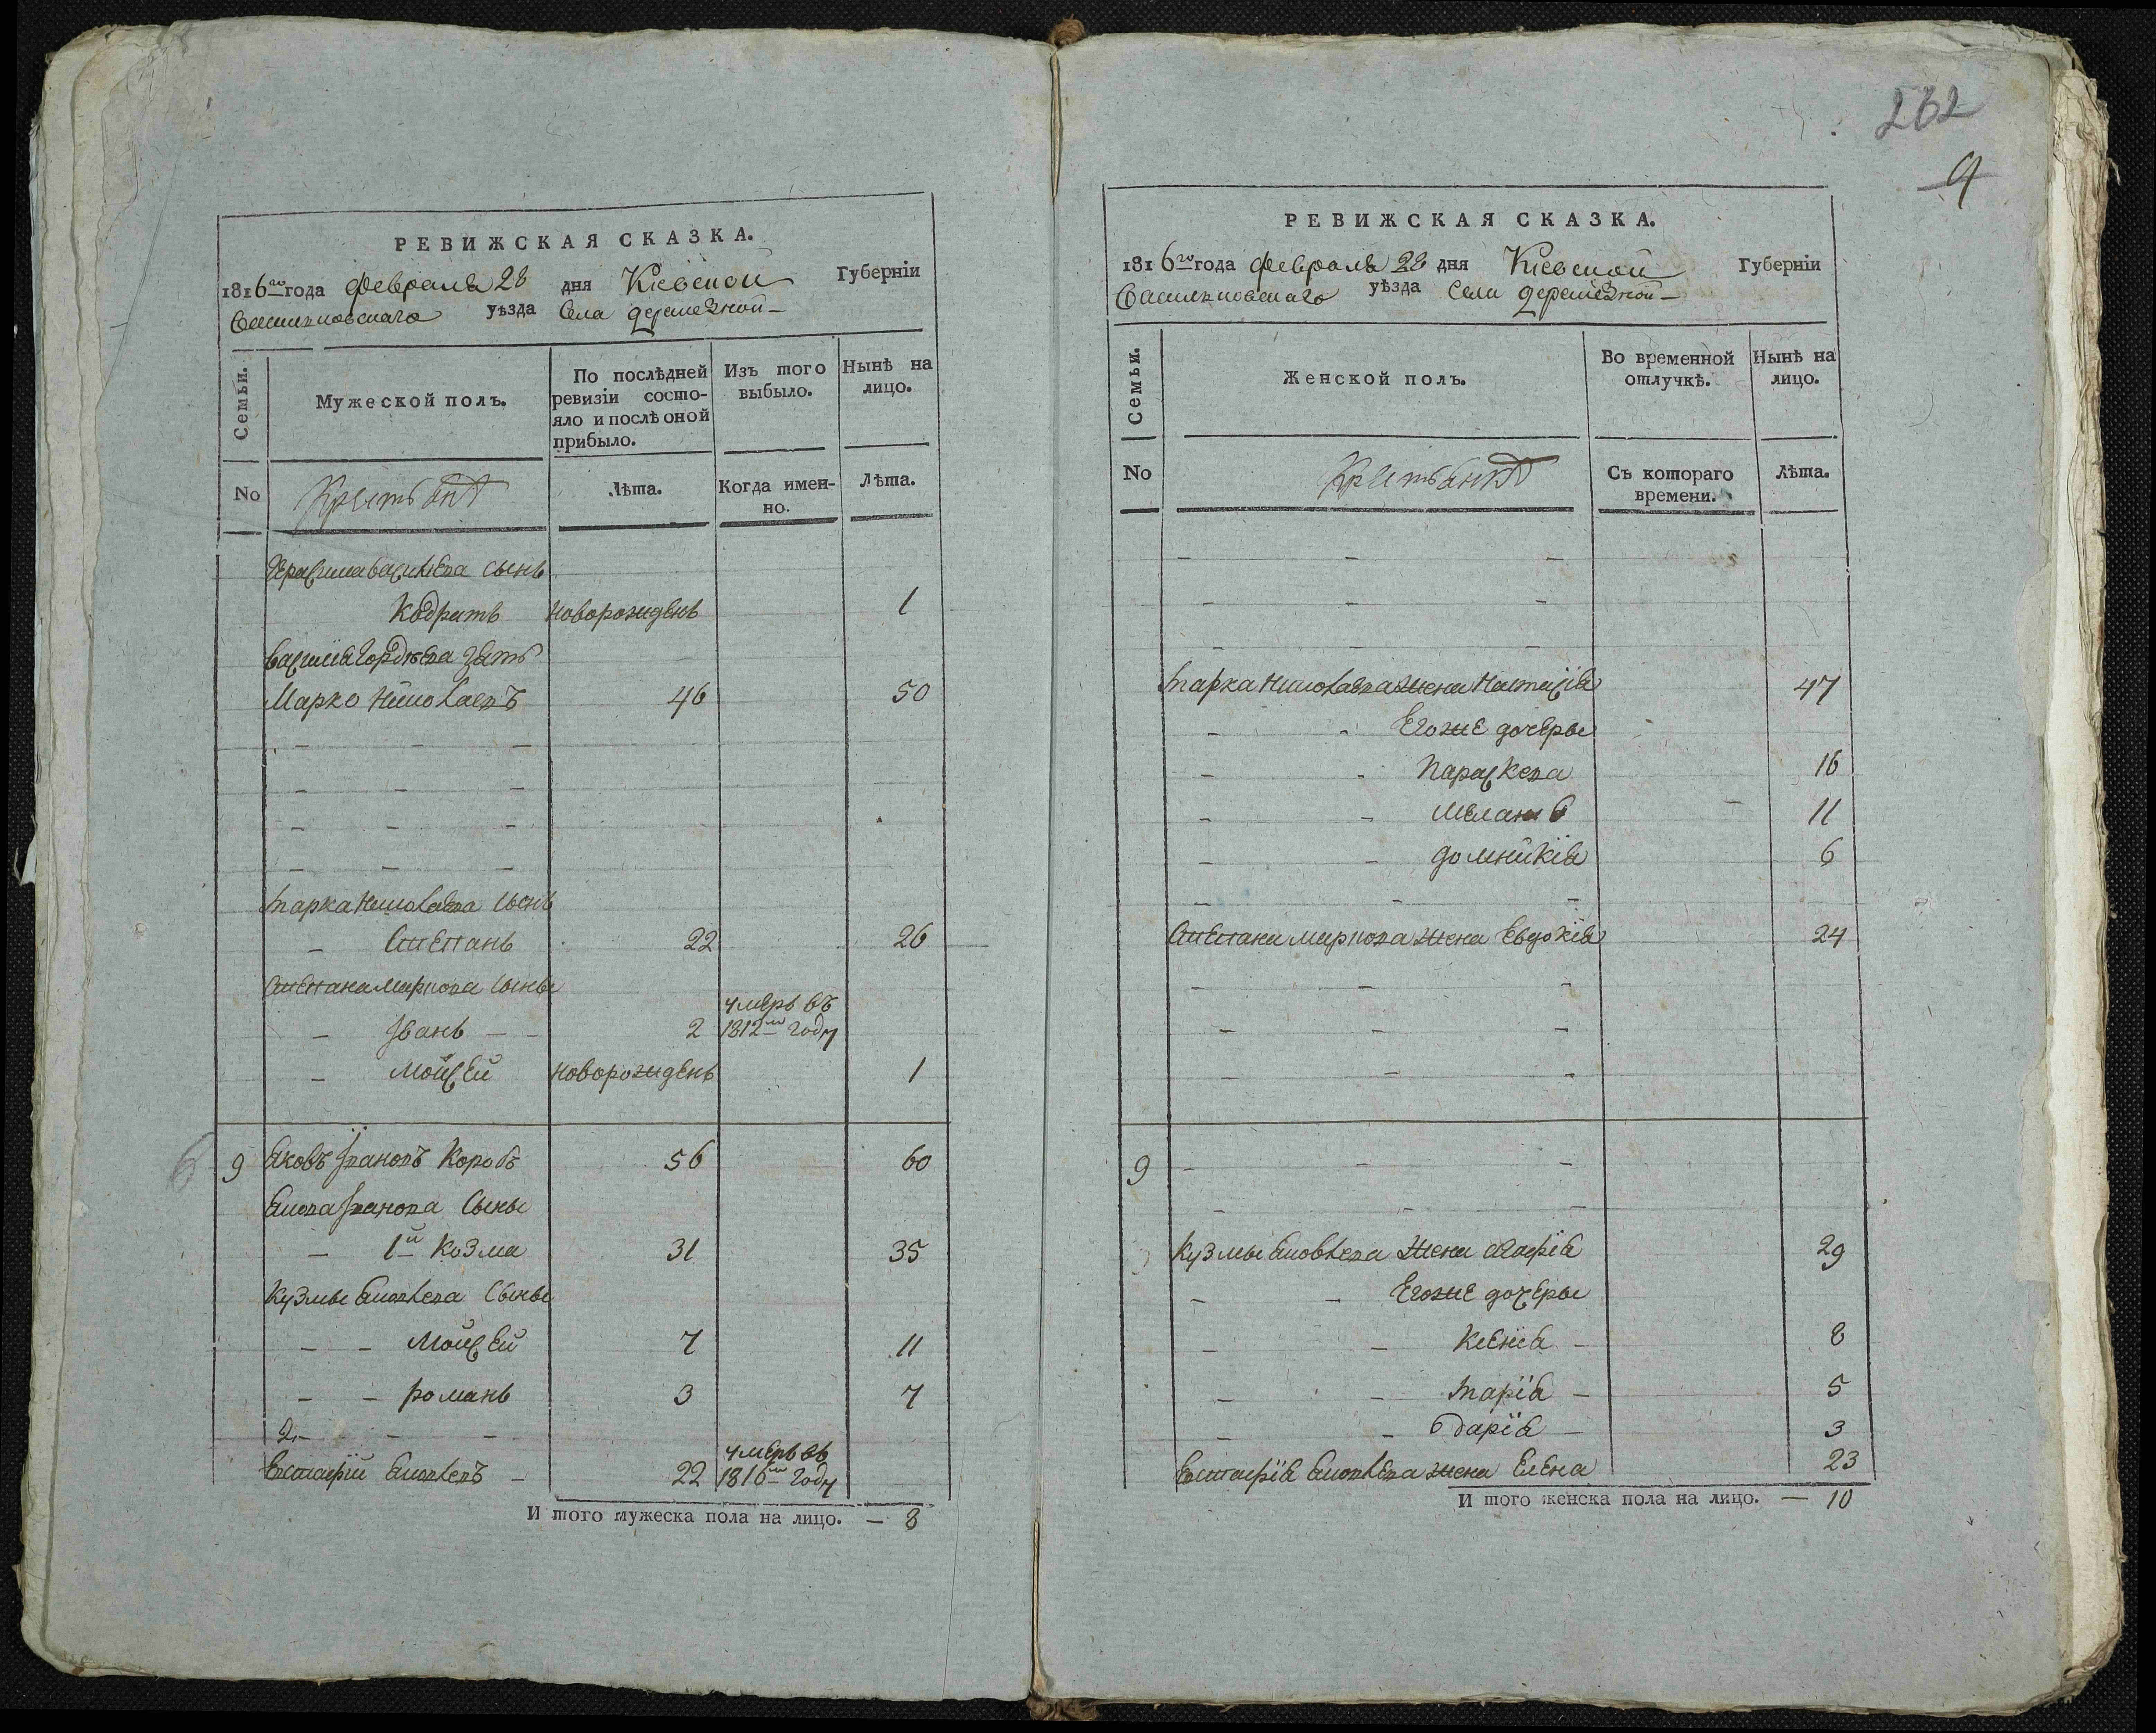 РЕВИЖСКАЯ СКАЗКА.
1816го года февраля 28 дня Кіевской Губерніи
Васильковскаго уѣзда Села
Семьи.
Мужеской полъ.
По послѣдней ревизіи состо-
яло и послѣ оной
прибыло.
Изъ того
выбыло.
Нынѣ на
лицо.
No
Лѣта.
Когда имен-
но.
Лѣта.
сынъ
Кодратъ новорожденъ 1
зять
Марко Николаевъ 46 50
Марка Николаева сынъ
Степанъ 22 26
Степана Маркова сыны
Иванъ 2 умеръ въ 1812м году
Мойсей новорожденъ 1
9 Яковъ Ивановъ Коробъ 56 60
Якова Иванова сыны
1й Козма 31 35
Кузмы Яковлева сыны
Мойсей 7 11
романъ 3 7
2.
Евстафій Яковлевъ 22 умеръ въ 1816м году
И того мужеска пола на лицо. — 8
262
9
РЕВИЖСКАЯ СКАЗКА.
1816го года февраля 28 дня Кіевской Губерніи
Васильковскаго уѣзда Села
Семьи.
Женской полъ.
Во временной
отлучкѣ.
Нынѣ на
лицо.
No
Съ котораго
времени.
Лѣта.
Марка Николаева жена Настасія 47
Егоже дочеры
Параскева 16
Меланя 11
домникія 6
Степана Маркова жена Евдокія 24
9
Кузмы Яковлева жена Агафія 29
Егоже дочеры
Ксенія 8
Марія 5
дарія 3
Евстафія Яковлева жена Елена 23
И того женска пола на лицо. — 10